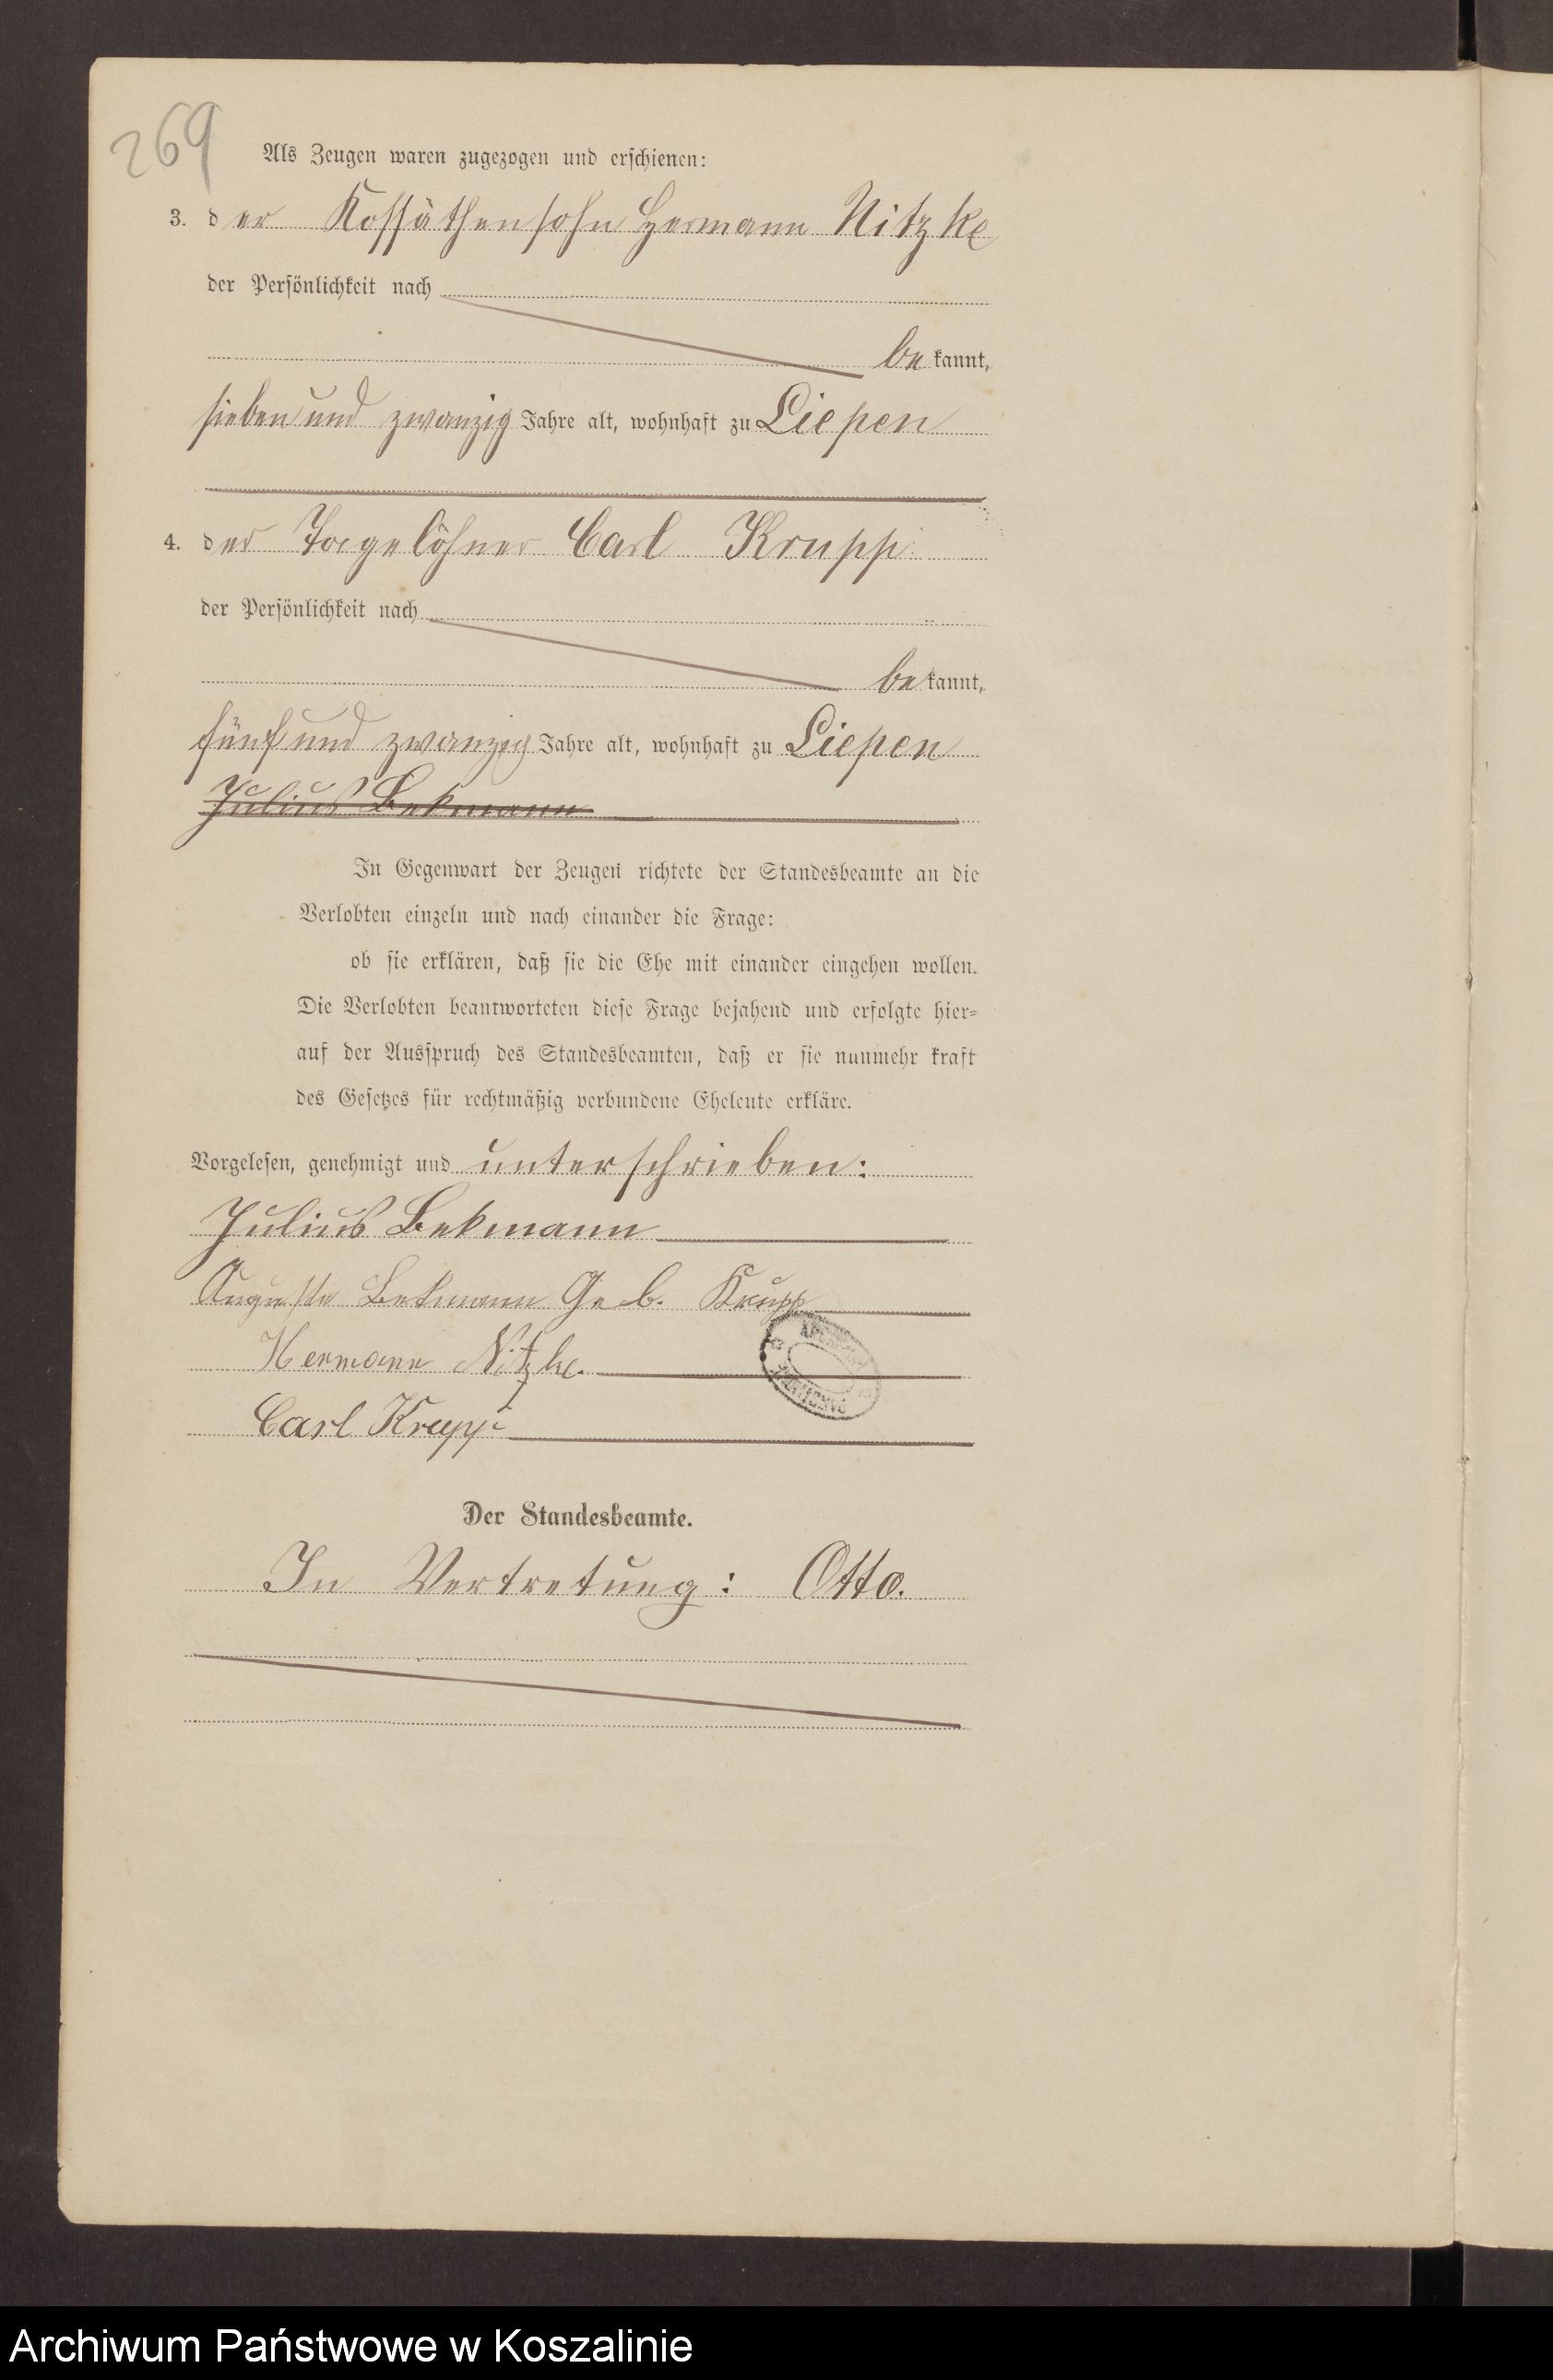 269
Als Zeugen waren zugezogen und erschienen:
3. der Kossäthensohn Hermann Nitzke
der Persönlichkeit nach
bekannt,
sieben und zwanzig Jahre alt, wohnhaft zu Liepen
4. der Tagelöhner Carl Krupp
der Persönlichkeit nach
bekannt,
fünf und zwanzig Jahre alt, wohnhaft zu Liepen
Julius Bekmann
In Gegenwart der Zeugen richtete der Standesbeamte an die
Verlobten einzeln und nach einander die Frage:
ob sie erklären, daß sie die Ehe mit einander eingehen wollen.
Die Verlobten beantworteten diese Frage bejahend und erfolgte hier-
auf der Ausspruch des Standesbeamten, daß er sie nunmehr kraft
des Gesetzes für rechtmäßig verbundene Eheleute erkläre.
Vorgelesen, genehmigt und unterschrieben:
Julius Bekmann
Auguste Bekmann Geb. Krupp
Hermann Nitzke.
Carl Krupp
Der Standesbeamte.
In Vertretung: Otto.
Archiwum Państwowe w Koszalinie